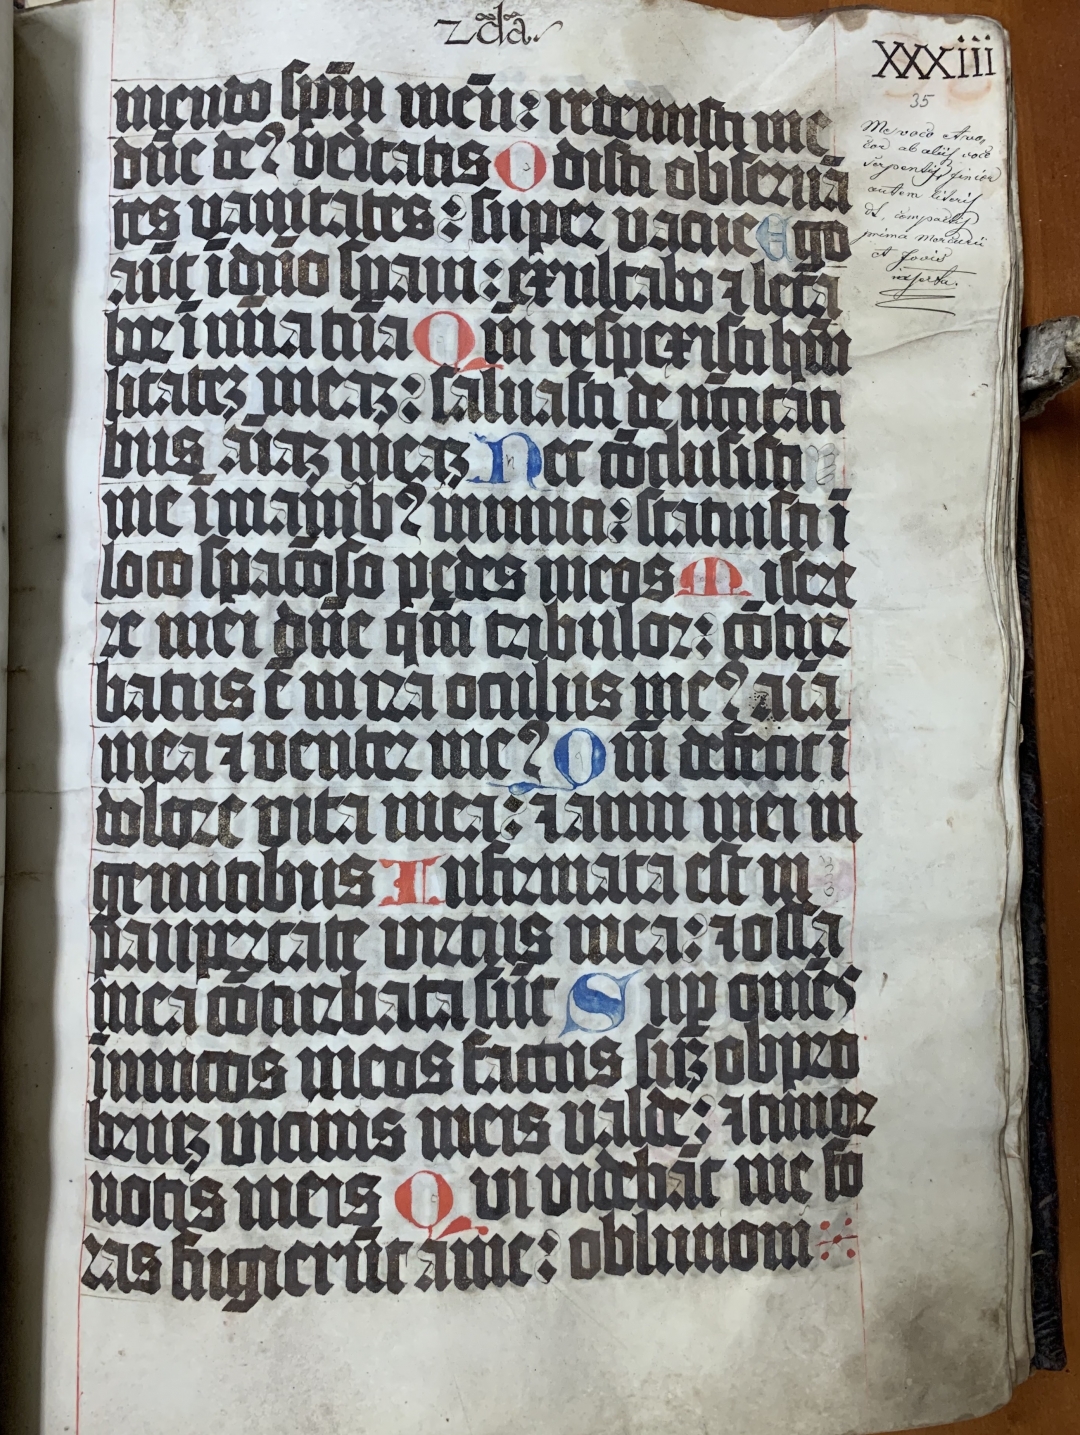 zda
XXXiii
35
mendo spm meū: redemisti me
dñe de? veritatis Odisti obserua
tes vanitates: super vacue Ego
aūt i dño spaui: exultabo ⁊ leta
bor i mia tua Qm respexisti hūi
litatez meaz: saluasti de necitati
bus aiaz meaz Nec cōclusisti
me i manib? inimici: statuisti i
loco spacioso pedes meos Misere
re mei dñe qm tribulor: cōtur
batus ē i ira oculus me? aia
mea ⁊ venter me? Qm defecit i
dolore vita mea: ⁊ anni mei in
gemitibus Infirmata est in
paupertate virtus mea: ⁊ ossa
mea cōturbata sūt Sup omēs
inimicos meos factus suz obpro
briuz vicinis meis valde: ⁊ timor
notis meis Qui videbāt me fo
ras fugierūt a me: obliuioni
Me voco
ab alijs voco
serpentis junior
autem literis
prima Mercurii
et Jovis